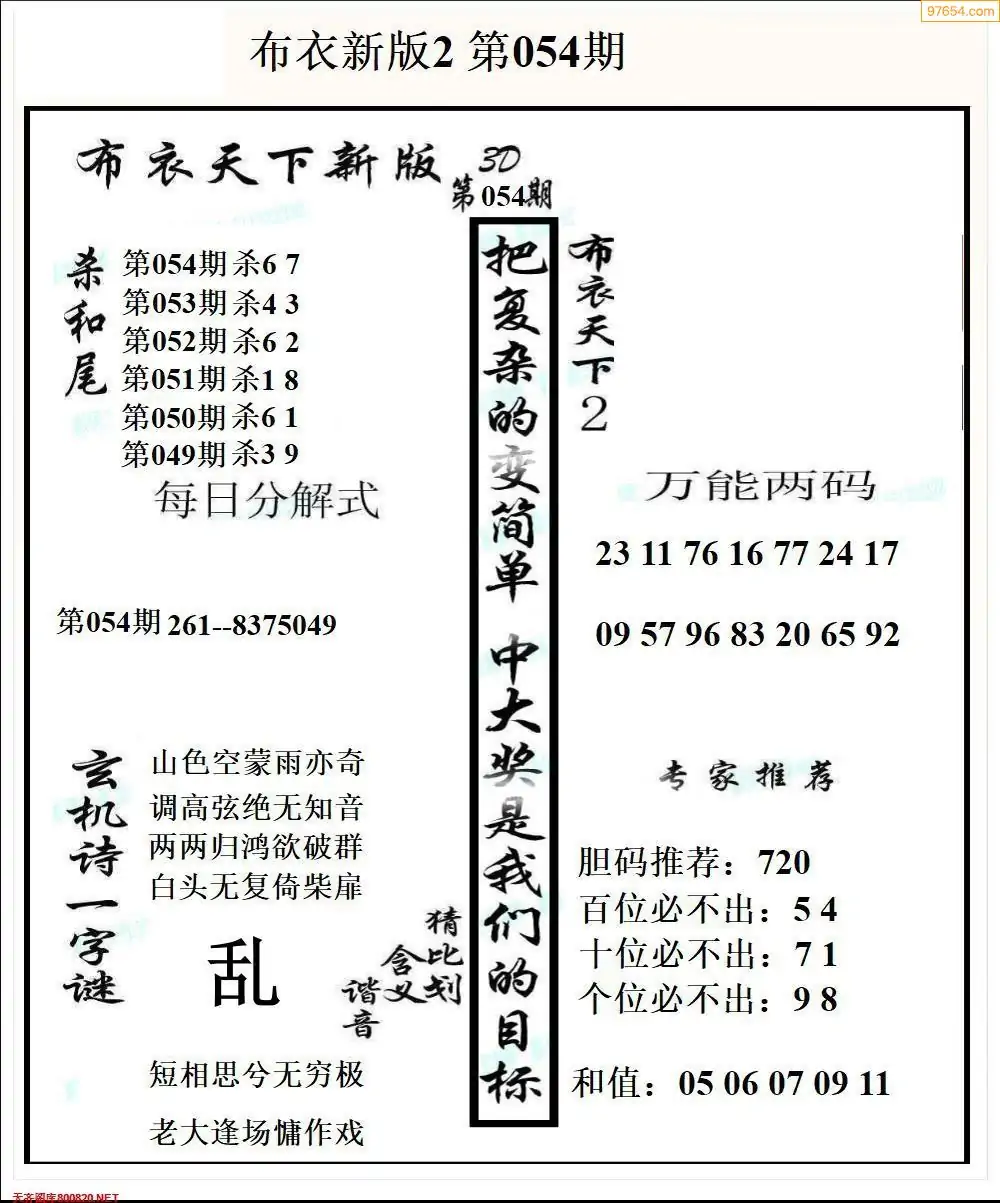 97654.com
布衣新版2 第054期
布衣天下新版
3D
第054期
杀和尾
第054期 杀6 7
第053期 杀4 3
第052期 杀6 2
第051期 杀1 8
第050期 杀6 1
第049期 杀3 9
每日分解式
第054期 261--8375049
玄机诗一字谜
山色空蒙雨亦奇
调高弦绝无知音
两两归鸿欲破群
白头无复倚柴扉
乱
猜比划
含义
谐音
短相思兮无穷极
老大逢场慵作戏
把复杂的变简单 中大奖是我们的目标
布衣天下2
万能两码
23 11 76 16 77 24 17
09 57 96 83 20 65 92
专家推荐
胆码推荐：720
百位必不出：5 4
十位必不出：7 1
个位必不出：9 8
和值：05 06 07 09 11
天齐图库800820.NET